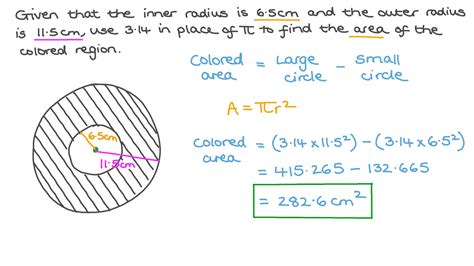 Given that the inner radius is 6.5cm and the outer radius
is 11.5cm, use 3.14 in place of π to find the area of the
colored region.
Colored area = Large circle − Small circle
A = πr²
Colored area = (3.14 × 11.5²) − (3.14 × 6.5²)
= 415.265 − 132.665
= 282.6 cm²
6.5cm
11.5cm